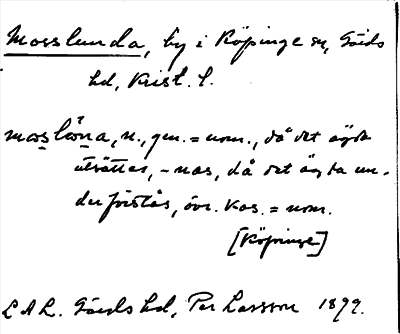 Mosslunda, by i Köpinge sn, Gärds
hd, Krist. l.
måslə̊na, n., gen. = nom., då det ägda
utsättes, -nas, då det ägda un-
derförstås, övr. kas. = nom.
[Köpinge]
LAL. Gärds hd, Per Larsson 1899.